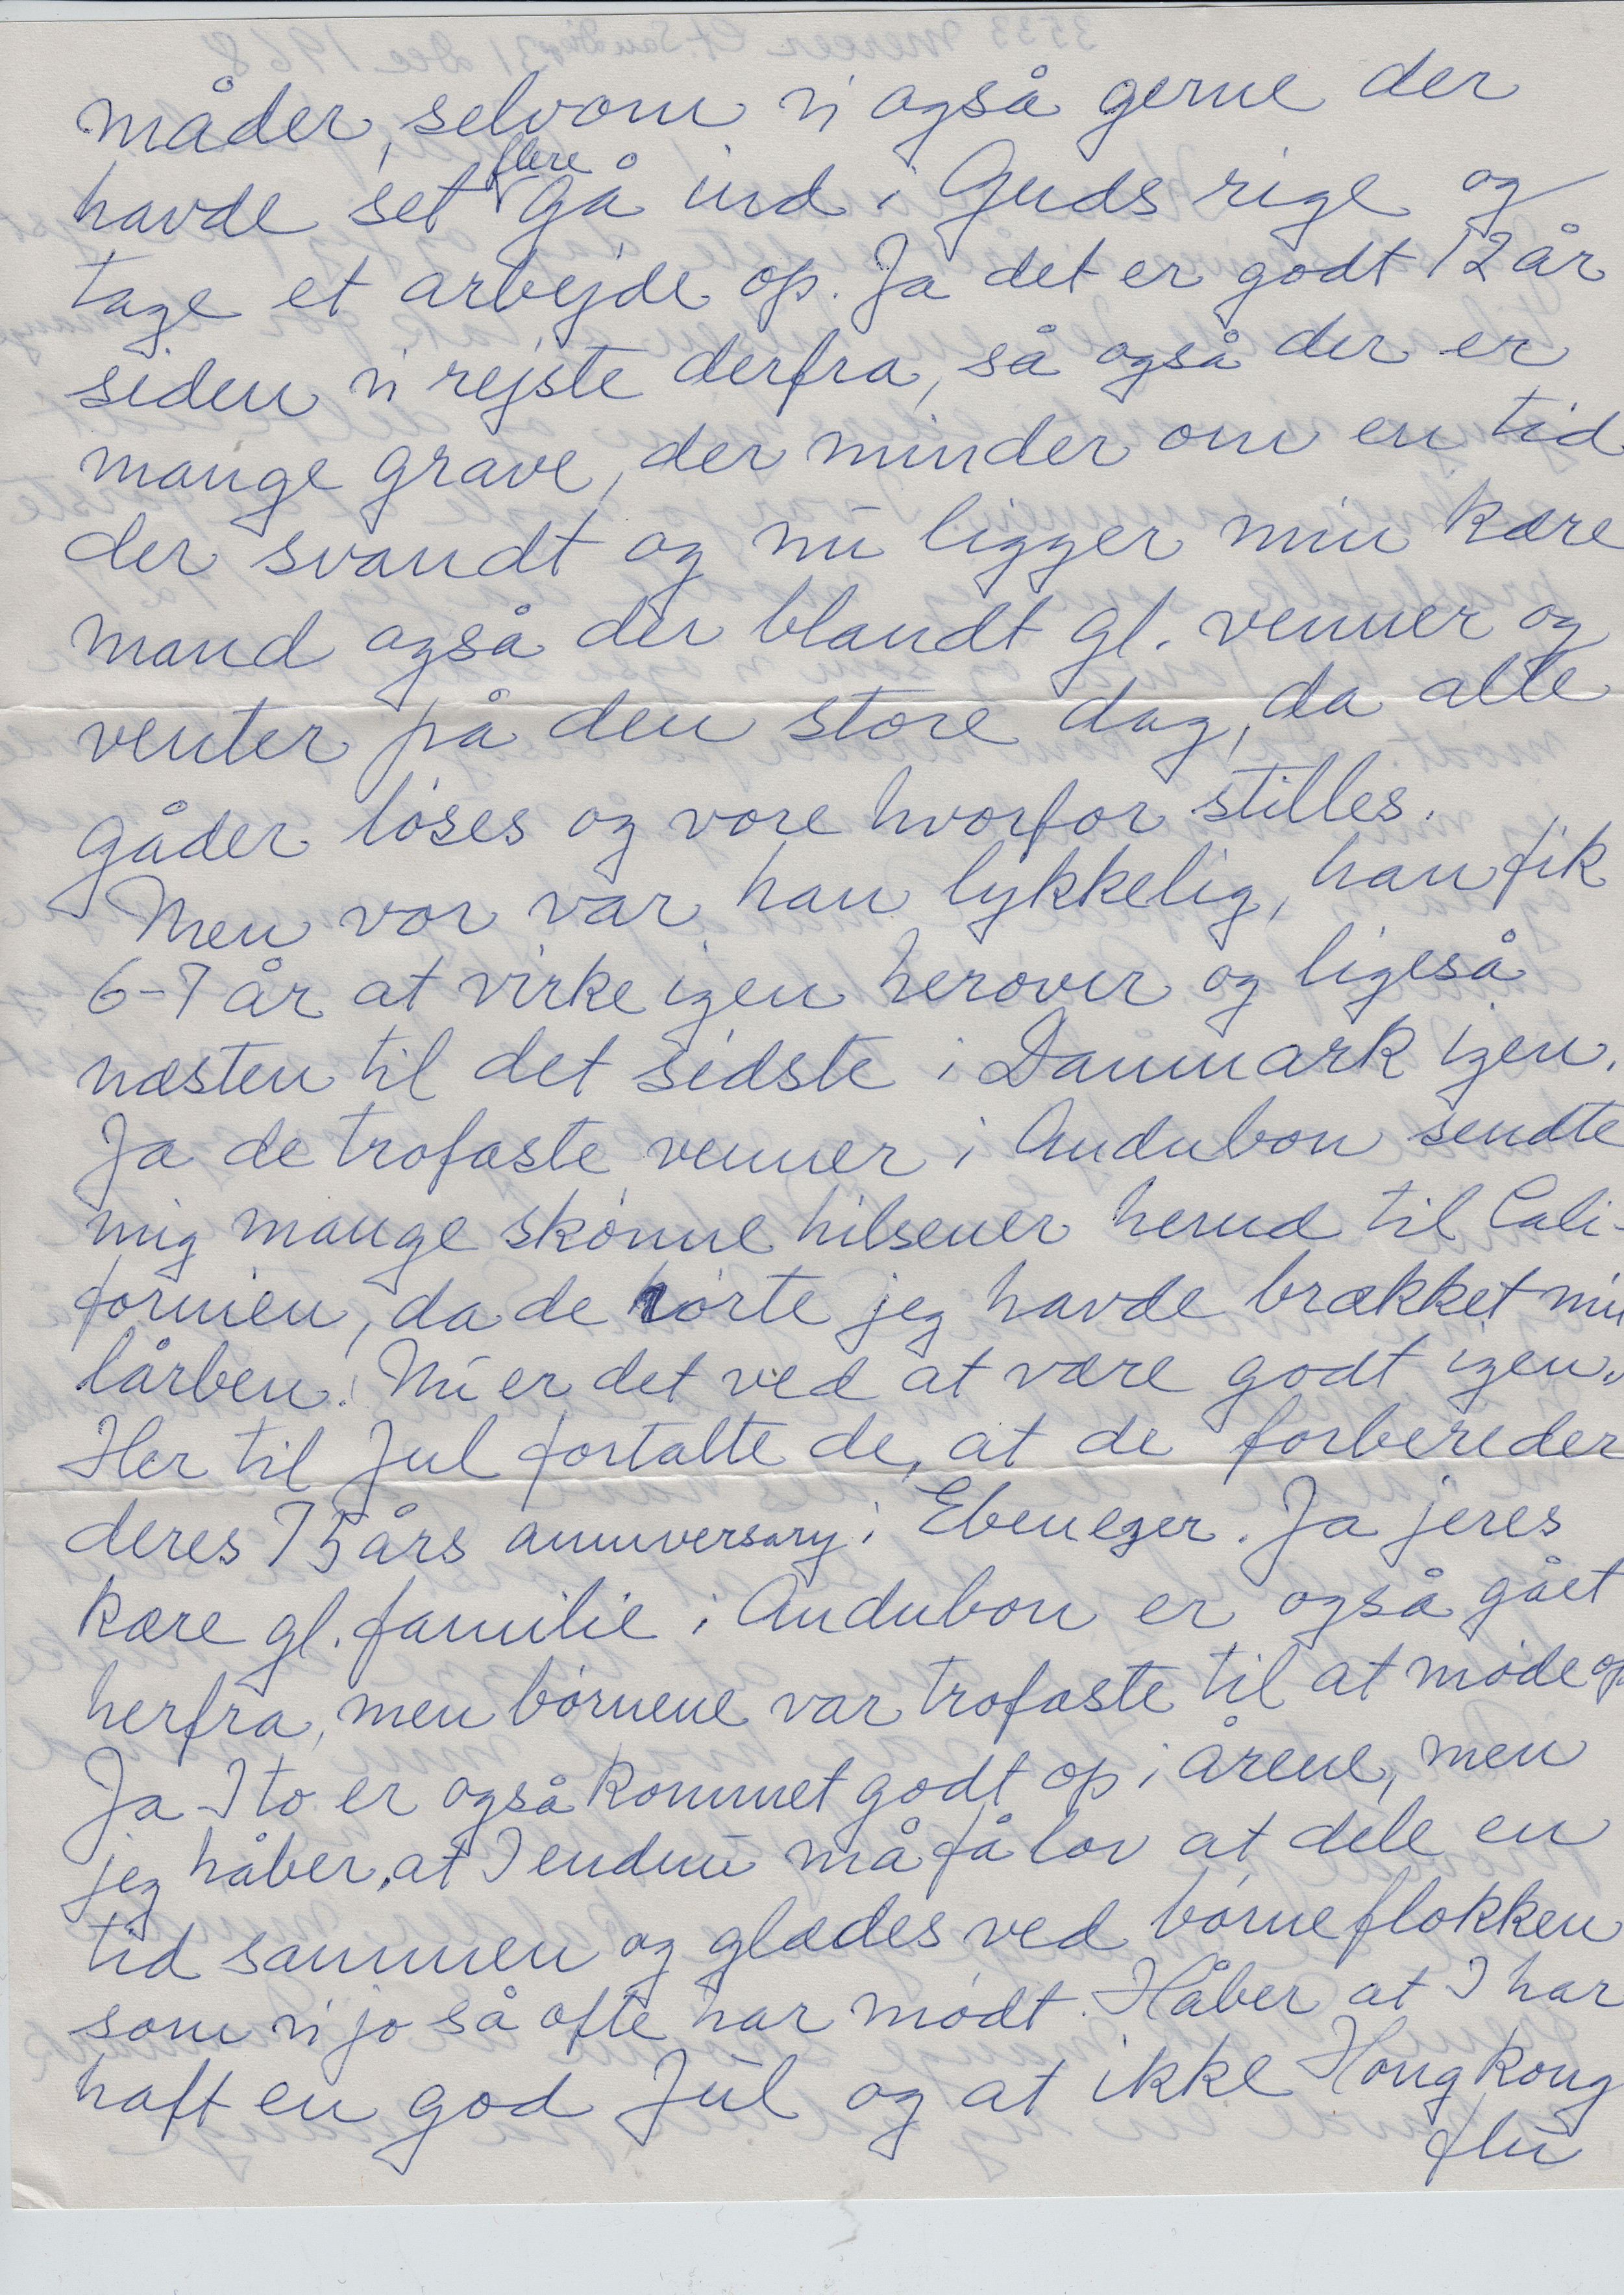 måder, selvom vi også gerne der
havde set flere gå ind i Guds rige og
tage et arbejde op. Ja det er godt 12 år
siden vi rejste derfra, så også der er
mange grave, der minder om en tid
der svandt og nu ligger min kære
mand også der blandt gl. venner og
venter på den store dag, da alle
gåder løses og vore hvorfor stilles.
Men vor var han lykkelig, han fik
6-7 år at virke igen herover og ligeså
næsten til det sidste i Danmark igen.
Ja de trofaste venner i Audubon sendte
mig mange skønne hilsener herud til Cali-
fornien, da de hørte jeg havde brækket min
lårben. Nu er det ved at være godt igen.
Her til Jul fortalte de, at de forbereder
deres 75 års anniversary i Ebenezer. Ja jeres
kære gl. familie i Audubon er også gået
herfra, men børnene var trofaste til at møde op
Ja I to er også kommet godt op i årene, men
jeg håber, at I endnu må få lov at dele en
tid sammen og glædes ved børneflokken
som vi jo så ofte har mødt. Håber at I har
haft en god Jul og at ikke Hong kong
flu